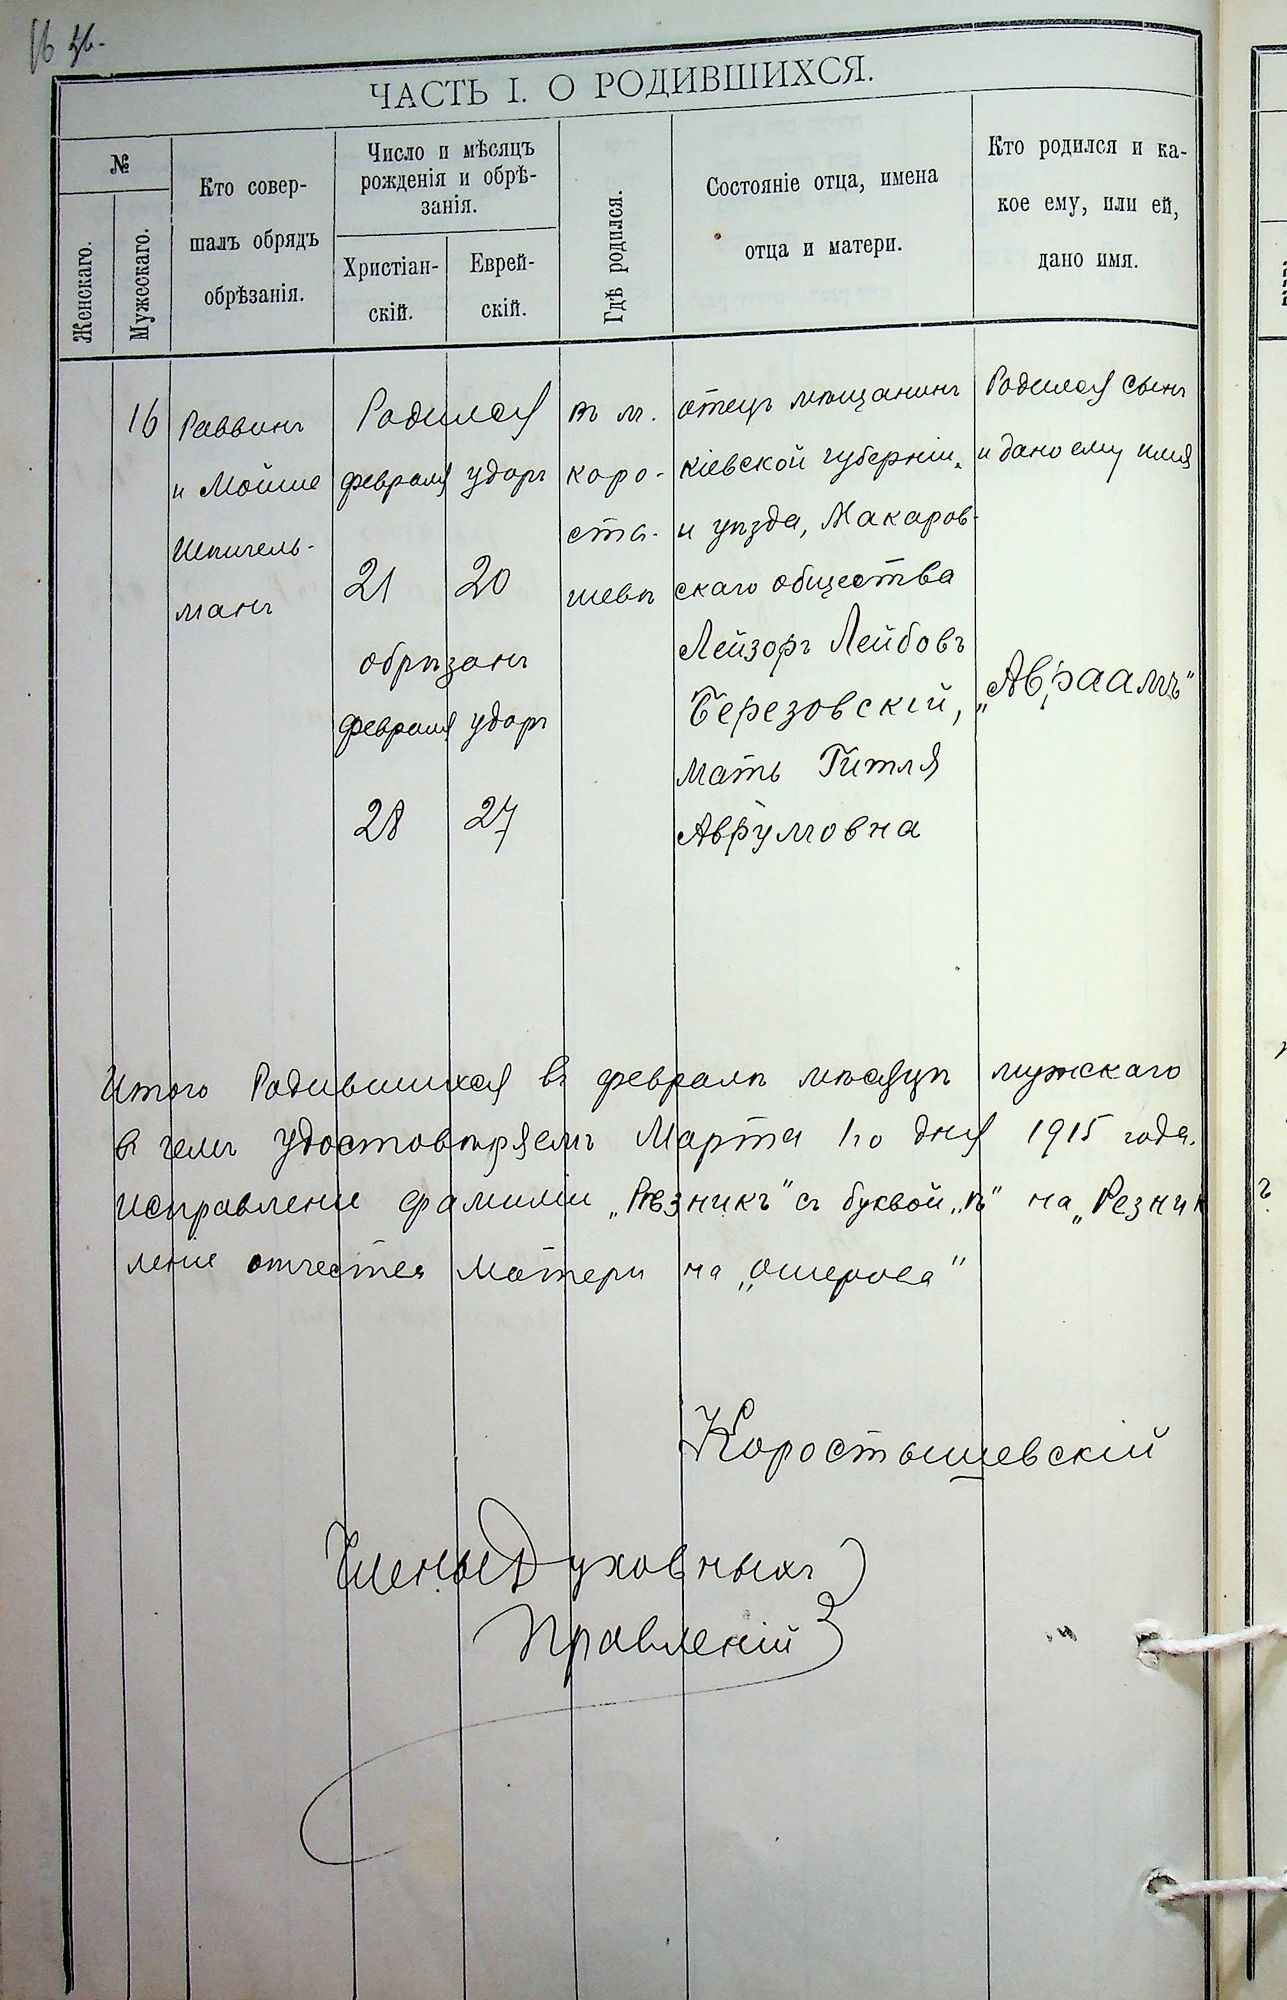 ЧАСТЬ I. О РОДИВШИХСЯ.
№
Женскаго.
Мужескаго.
Кто совер-
шалъ обрядъ
обрѣзанія.
Число и мѣсяцъ
рожденія и обрѣ-
занія.
Христіан-
скій.
Еврей-
скій.
Гдѣ родился.
Состояніе отца, имена
отца и матери.
Кто родился и ка-
кое ему, или ей,
дано имя.
16
Раввинъ
и Мойше
Шпигель-
манъ
Родился
февраля удоръ
21 20
обрѣзанъ
февраля удоръ
28 27
въ м.
коро-
сты-
шевѣ
отецъ мѣщанинъ
кіевской губерніи
и уѣзда, Макаров-
скаго общества
Лейзоръ Лейбовъ
Березовскій,
мать Гитля
Аврумовна
Родился сынъ
и дано ему имя
„Авраамъ"
Итого Родившихся въ февралѣ мѣсяцѣ мужскаго
въ чемъ удостовѣряемъ Марта 1го дня 1915 года.
исправленіе фамиліи „Рѣзникъ" съ буквой „ѣ" на „Резник
леніе отчества матери на „Ошерова"
Коростышевскій
Члены Духовныхъ
Правленій